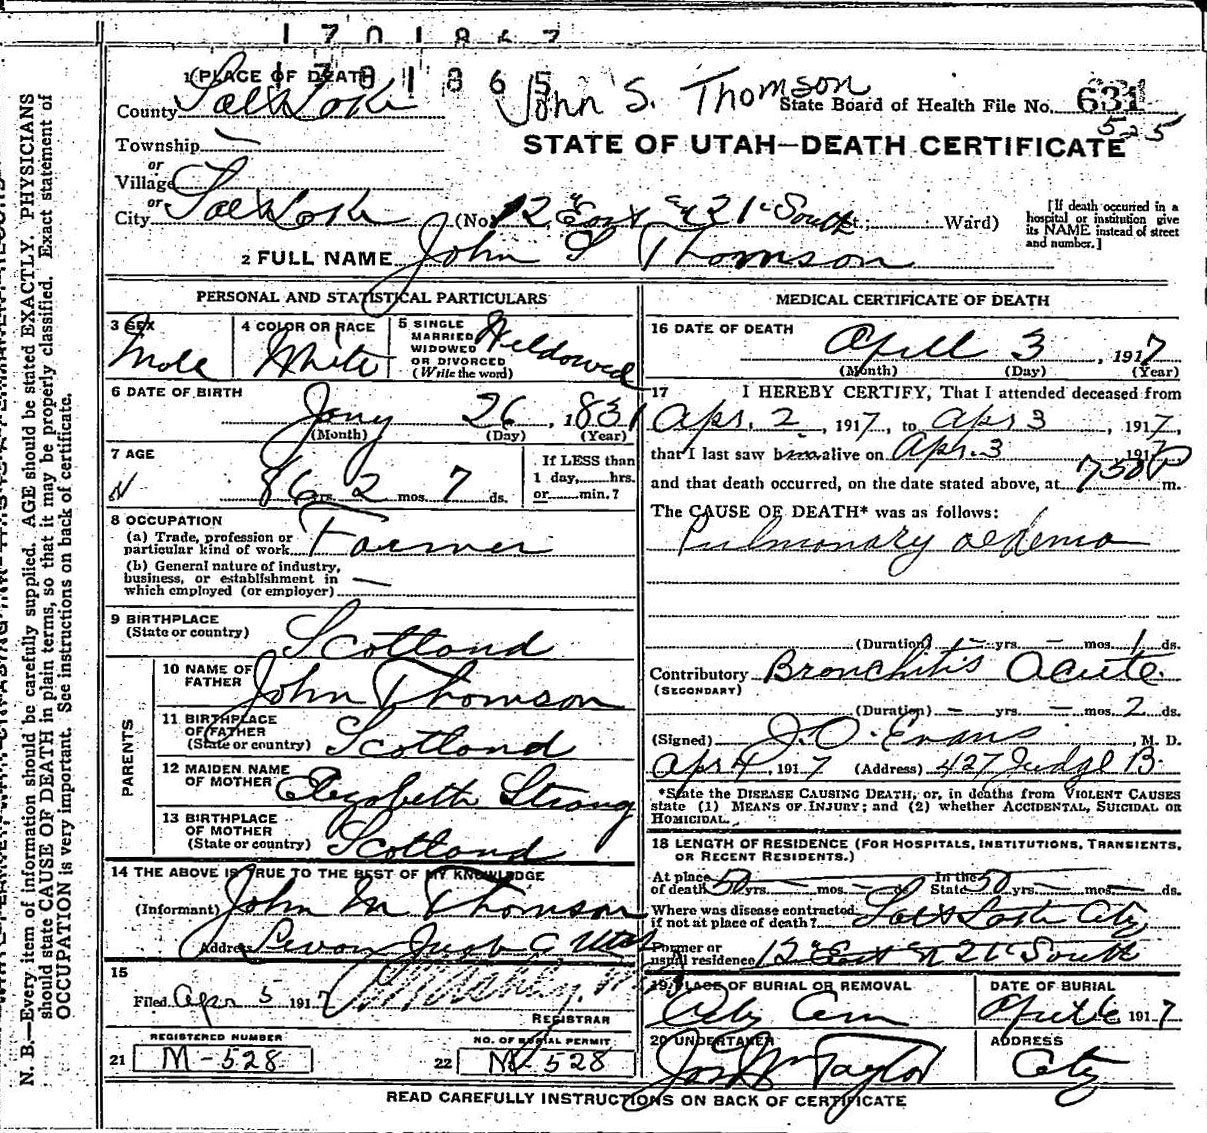 1701867
1701865
1 PLACE OF DEATH
John S. Thomson
County Salt Lake
State Board of Health File No. 631
525
Township —
STATE OF UTAH—DEATH CERTIFICATE
or
Village
or
City Salt Lake (No. 12 East 21 South St.; Ward)
[If death occurred in a hospital or institution give its NAME instead of street and number.]
2 FULL NAME John S Thomson
PERSONAL AND STATISTICAL PARTICULARS
3 SEX Male
4 COLOR OR RACE White
5 SINGLE MARRIED WIDOWED OR DIVORCED (Write the word) Widowed
6 DATE OF BIRTH
Jany 26, 1831
(Month) (Day) (Year)
7 AGE
86 yrs. 2 mos. 7 ds.
If LESS than 1 day, hrs. or min.?
8 OCCUPATION
(a) Trade, profession or particular kind of work Farmer
(b) General nature of industry, business, or establishment in which employed (or employer) —
9 BIRTHPLACE (State or country) Scotland
PARENTS
10 NAME OF FATHER John Thomson
11 BIRTHPLACE OF FATHER (State or country) Scotland
12 MAIDEN NAME OF MOTHER Elizabeth Strang
13 BIRTHPLACE OF MOTHER (State or country) Scotland
14 THE ABOVE IS TRUE TO THE BEST OF MY KNOWLEDGE
(Informant) John M Thomson
Address Utah
15
Filed Apr 5 1917
REGISTRAR
REGISTERED NUMBER
21 M-528
NO. OF BURIAL PERMIT
22 M-528
MEDICAL CERTIFICATE OF DEATH
16 DATE OF DEATH
April 3, 1917
(Month) (Day) (Year)
17 I HEREBY CERTIFY, That I attended deceased from
Apr. 2, 1917, to Apr 3, 1917,
that I last saw him alive on Apr. 3 1917
and that death occurred, on the date stated above, at 750 P m.
The CAUSE OF DEATH* was as follows:
Pulmonary oedema
(Duration) – yrs. – mos. 1 ds.
Contributory Bronchitis Acute.
(SECONDARY)
(Duration) – yrs. – mos. 2 ds.
(Signed) J. O. Evans, M. D.
Apr 4, 1917 (Address) 427 Judge B.
*State the DISEASE CAUSING DEATH, or, in deaths from VIOLENT CAUSES
state (1) MEANS OF INJURY; and (2) whether ACCIDENTAL, SUICIDAL OR
HOMICIDAL.
18 LENGTH OF RESIDENCE (FOR HOSPITALS, INSTITUTIONS, TRANSIENTS,
OR RECENT RESIDENTS.)
At place of death 50 yrs. – mos. – ds. In the State 50 yrs. – mos. – ds.
Where was disease contracted if not at place of death? Salt Lake City
Former or usual residence 12 East 21 South
19 PLACE OF BURIAL OR REMOVAL
City Cem
DATE OF BURIAL
April 6 1917
20 UNDERTAKER
Jos Wm Taylor
ADDRESS
City
READ CAREFULLY INSTRUCTIONS ON BACK OF CERTIFICATE
N. B.—Every item of information should be carefully supplied. AGE should be stated EXACTLY. PHYSICIANS
should state CAUSE OF DEATH in plain terms, so that it may be properly classified. Exact statement of
OCCUPATION is very important. See instructions on back of certificate.